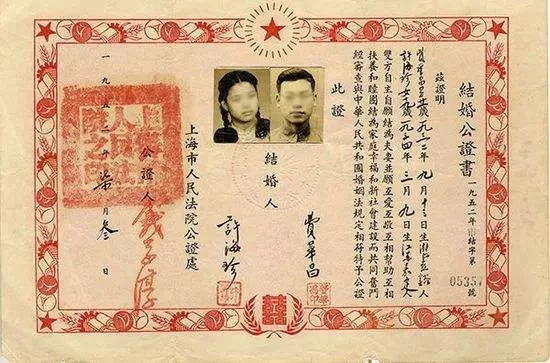 結婚公證書
一九五二年結字第
05357號
茲證明
費華昌 一九三二年九月十三日生浙江人
許海珍女 一九三四年三月九日生江蘇人
雙方自主自願結為夫妻並願互愛互敬互相幫助互相
扶養和睦團結為家庭幸福和新社會建設而共同奮鬥
經審查與中華人民共和國婚姻法規定相符特予公證
此證
結婚人
費華昌
許海珍
上海市人民法院公證處
公證人
一九五二年柒月叁日
囍